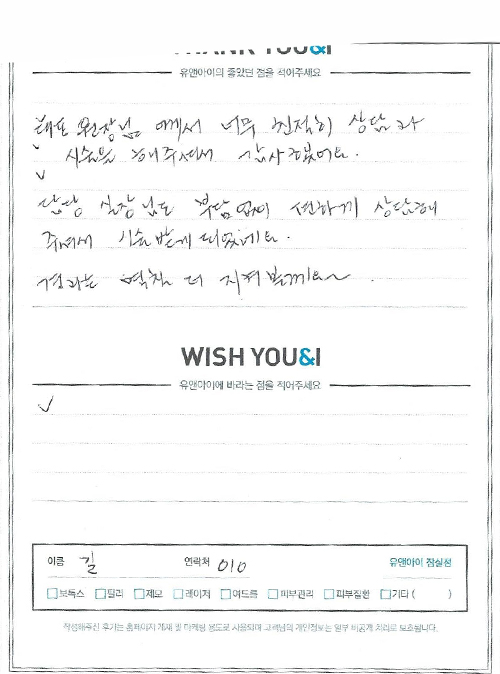 THANK YOU&I
유앤아이의 좋았던 점을 적어주세요
대표 원장님 께서 너무 친절히 상담과
시술을 해주셔서 감사했어요.
담당 실장님도 부담없이 편하게 상담해
주셔서 시술 받게 되었네요.
결과는 며칠 더 지켜볼께요~
WISH YOU&I
유앤아이에 바라는 점을 적어주세요
이름 길 연락처 010 유앤아이 잠실점
보톡스 필러 제모 레이저 여드름 피부관리 피부질환 기타 ( )
작성해주신 후기는 홈페이지 게재 및 마케팅 용도로 사용되며 고객님의 개인정보는 일부 비공개 처리로 보호됩니다.